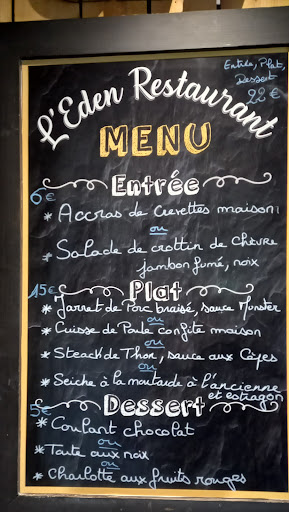 L'Eden Restaurant
Entrée, Plat,
Dessert
22 €
MENU
Entrée
6€
* Accras de Crevettes maison
ou
* Salade de crottin de chèvre
jambon fumé, noix
Plat
15€
* Jarret de Porc braisé, sauce Munster
ou
* Cuisse de Poule confite maison
ou
* Steack de Thon, sauce aux Cèpes
ou
* Seiche à la moutarde à l'ancienne
et estragon
Dessert
5€
* Coulant chocolat
ou
* Tarte aux noix
ou
* Charlotte aux fruits rouges